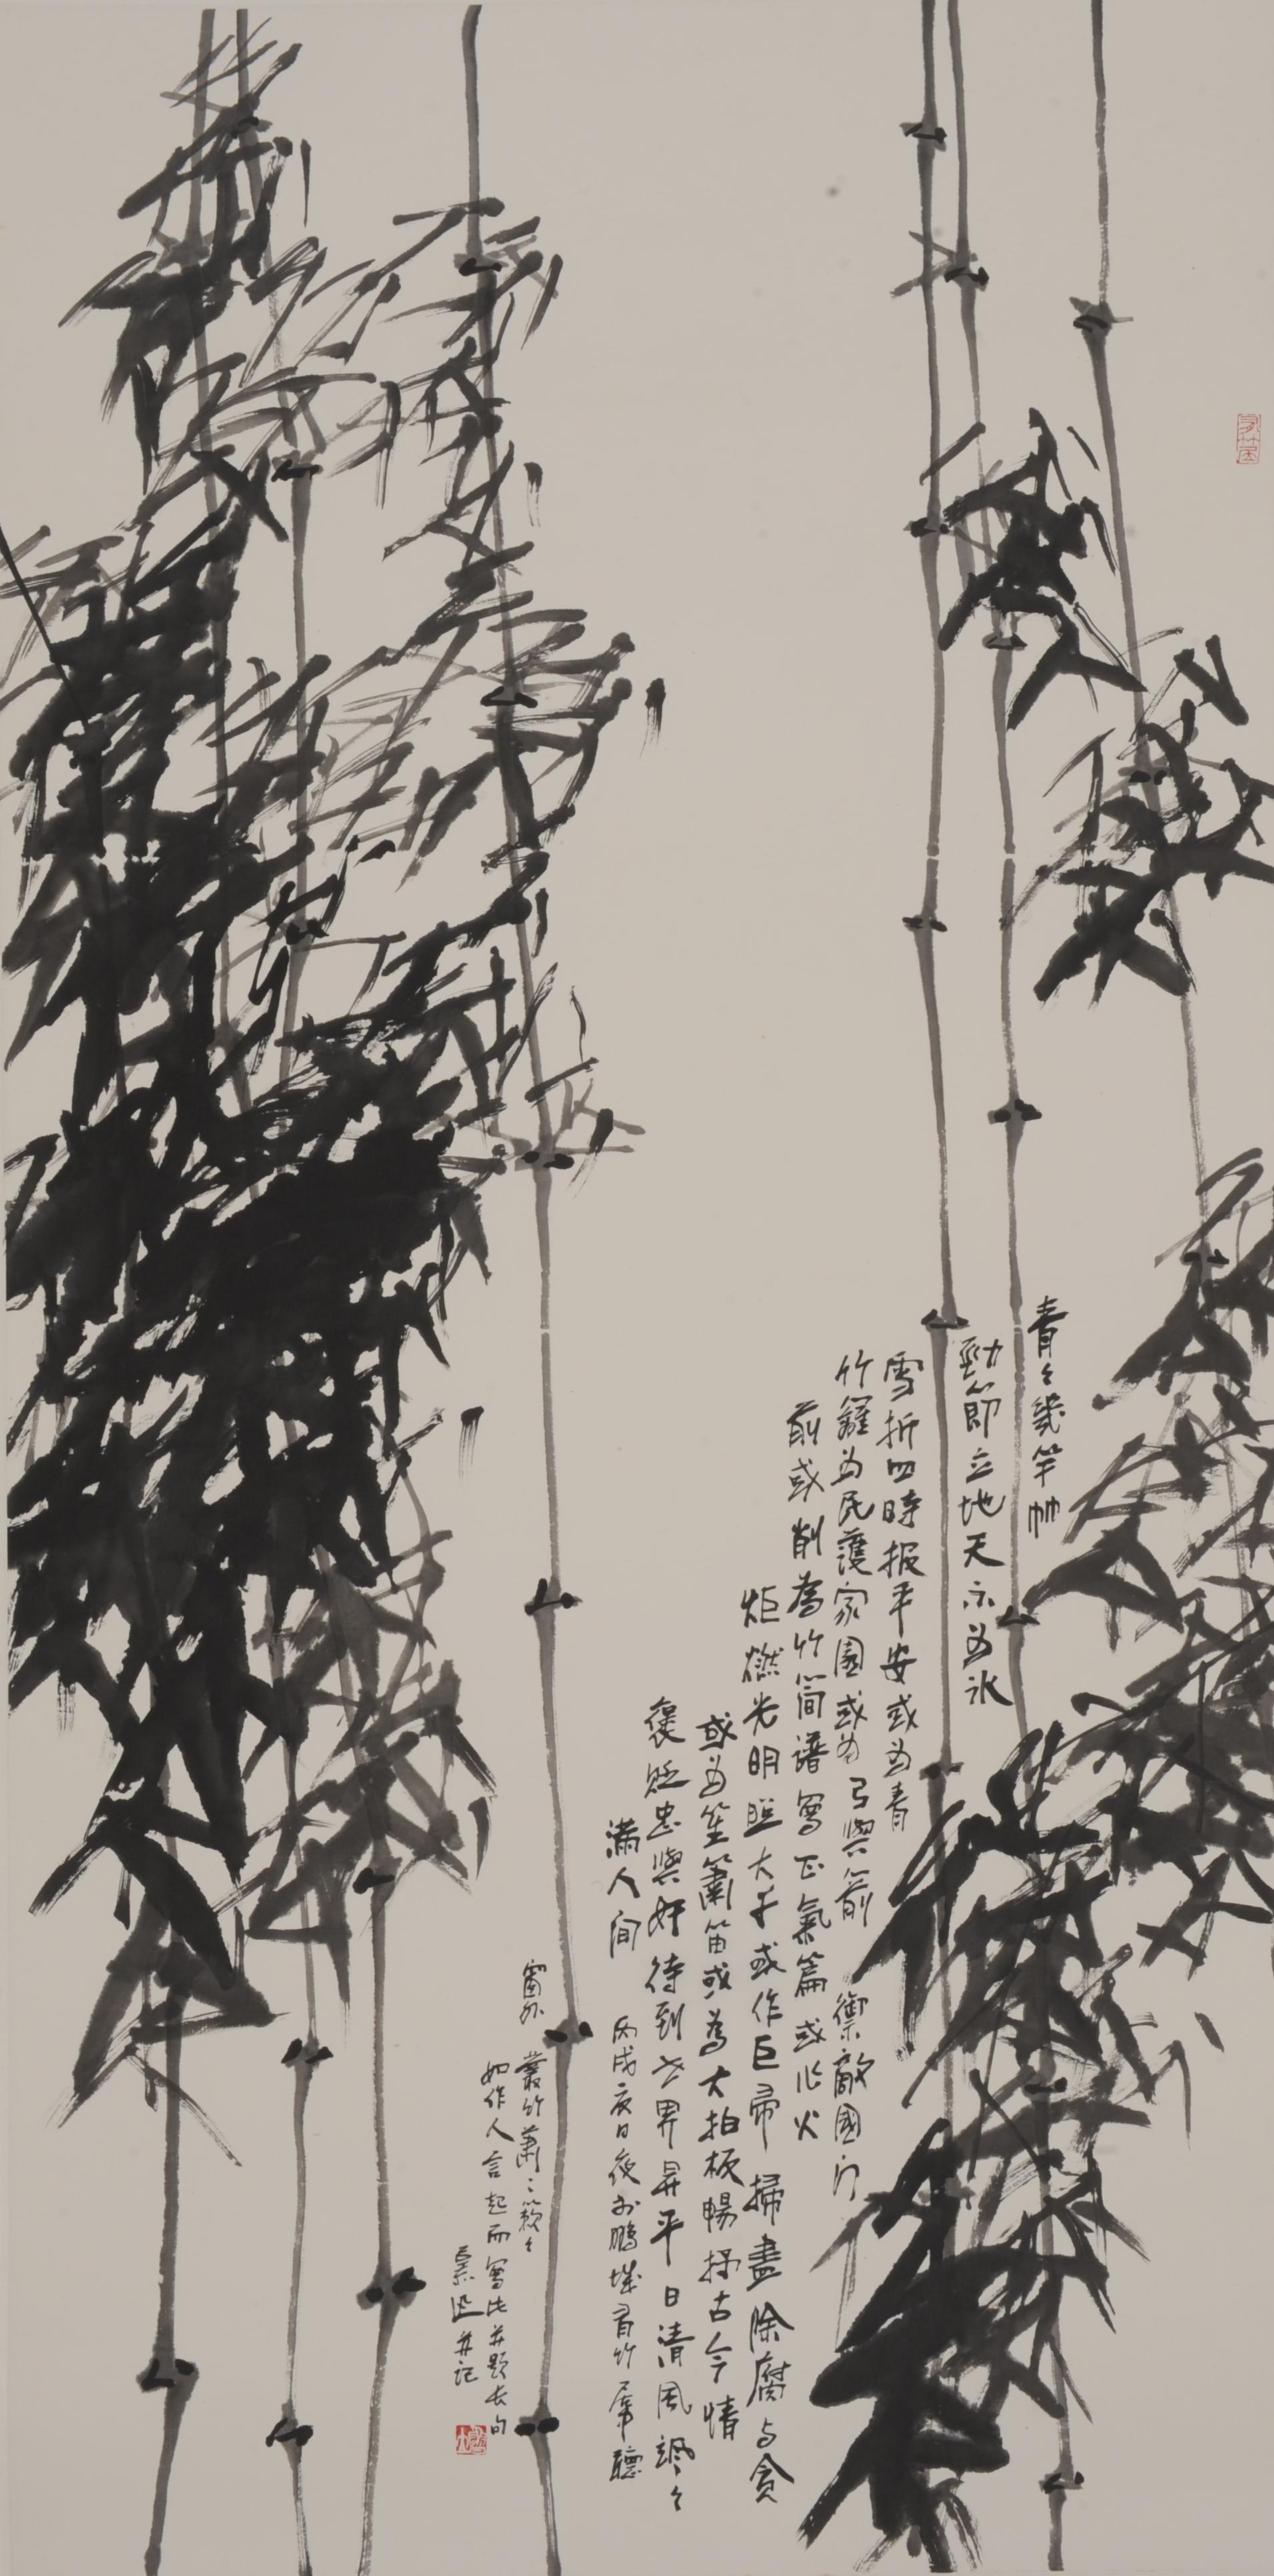 青々幾竿竹
勁節立地天不為冰
雪折四時报平安或為青
竹籬為民護家園或為弓與箭禦敵國门
前或削為竹简譜寫正氣篇或化火
炬燃光明照大千或作巨帚掃盡除腐与貪
或為笙簫笛或為大拍板暢抒古今情
褒貶忠與奸待到世界昇平日清風飒々
满人间
丙戌夜於鵬城有竹居聽
窗外叢竹蕭々簌々
如作人言起而寫此并題长句
并记